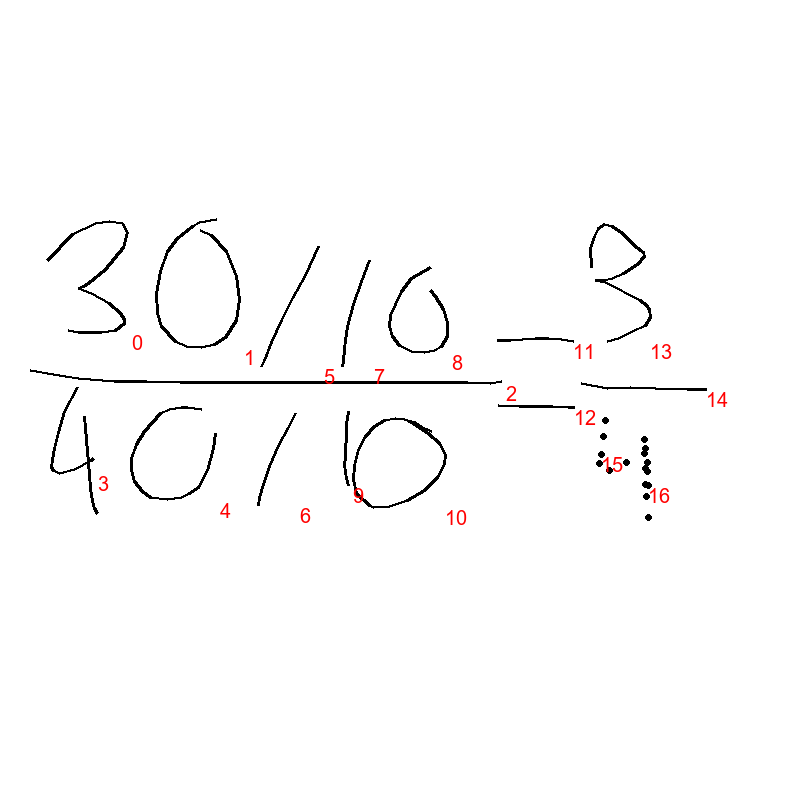 30/10 = 3
40/10 4
0 1 5 7 8 11 13
2 14
3 4 6 9 10 12 15 16